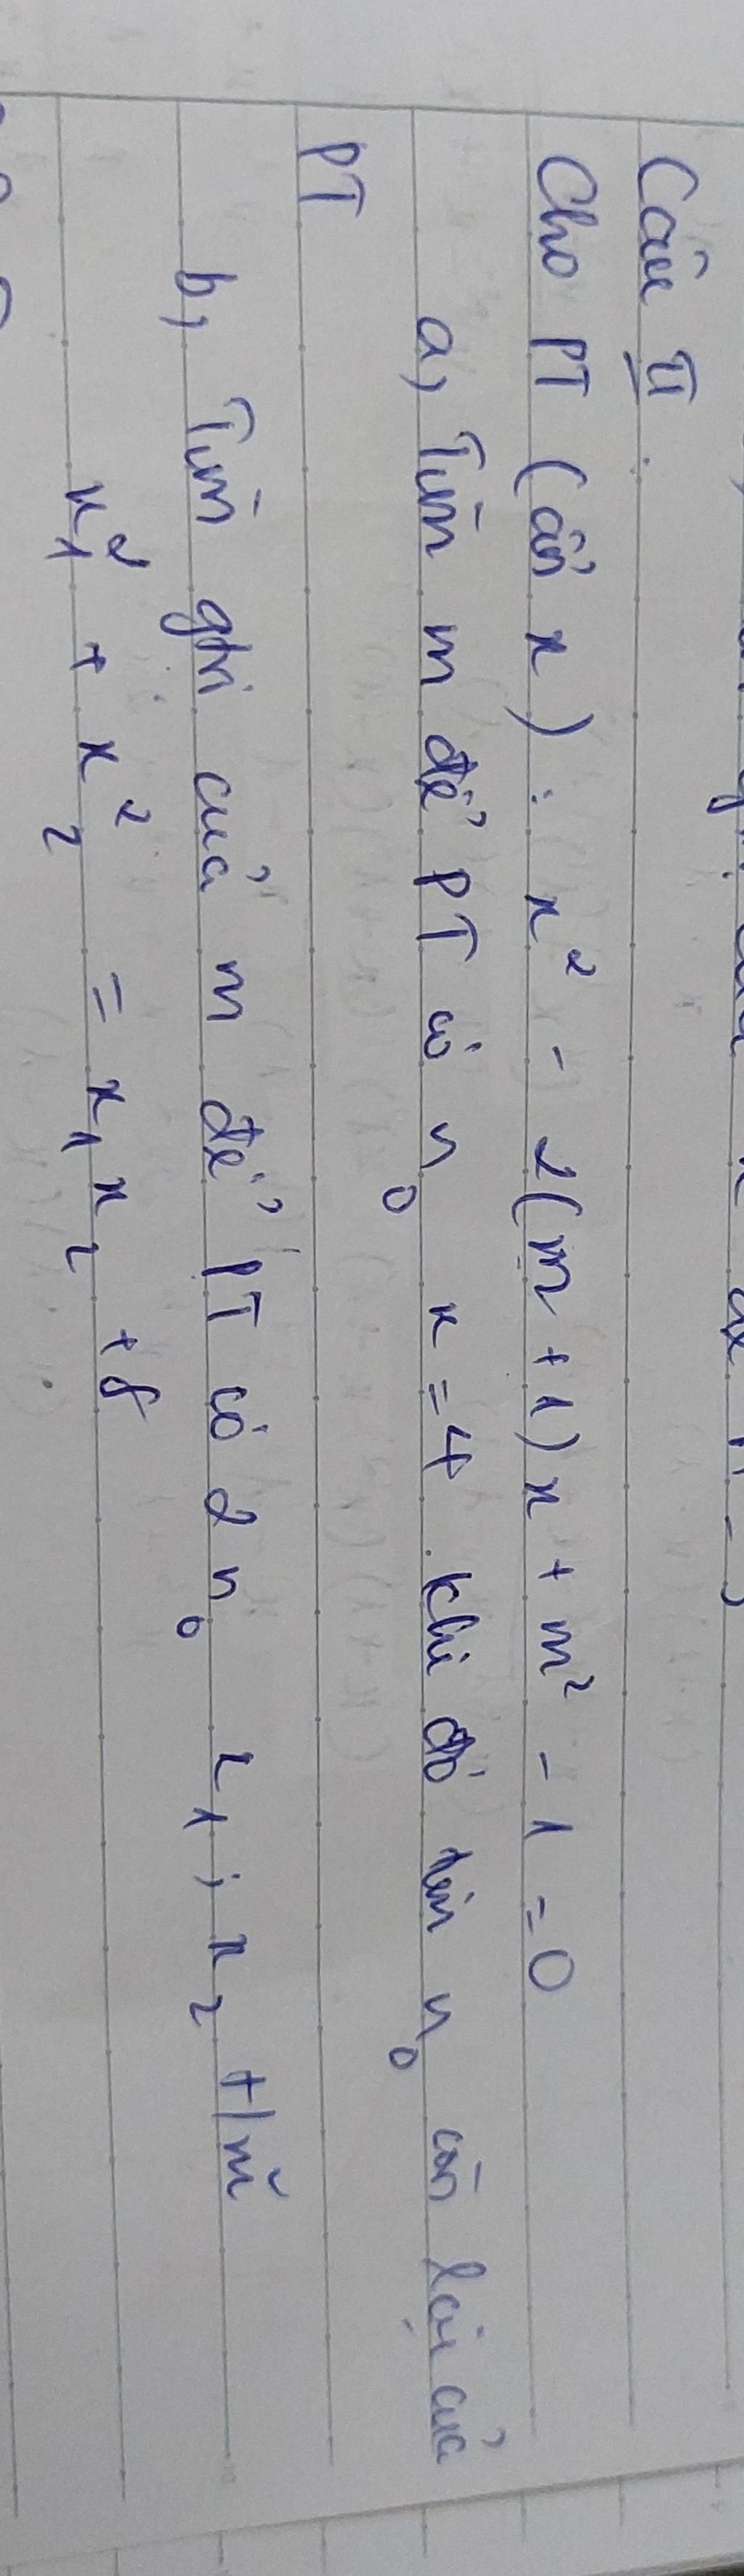 Câu II.
Cho PT (ẩn x) : x² - 2(m + 1)x + m² - 1 = 0
a, Tìm m để PT có n₀ x = 4. khi đó tìm n₀ còn lại của
PT
b, Tìm gtri của m để PT có 2 n₀ x₁ ; x₂ t/mã
x₁² + x₂² = x₁x₂ + 8